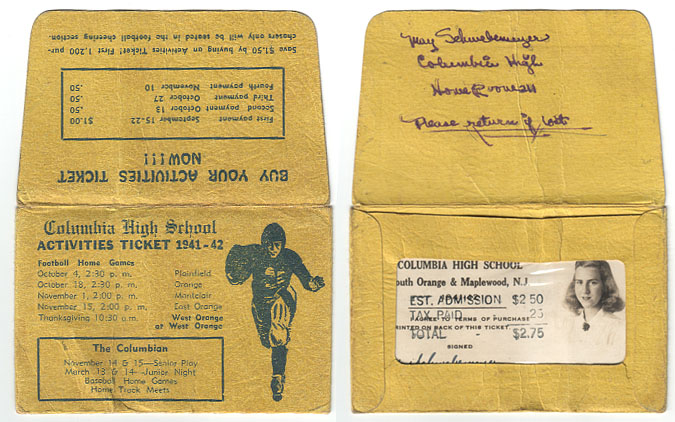 Save $1.50 by buying an Activities Ticket! First 1,200 pur-
chasers only will be seated in the football cheering section.
First payment September 15-22 $1.00
Second payment October 13 .50
Third payment October 27 .50
Fourth payment November 10 .50
BUY YOUR ACTIVITIES TICKET
NOW!!!
Columbia High School
ACTIVITIES TICKET 1941-42
Football Home Games
October 4, 2:30 p. m. Plainfield
October 18, 2:30 p. m. Orange
November 1, 2:00 p. m. Montclair
November 15, 2:00 p. m. East Orange
Thanksgiving 10:30 a.m. West Orange
at West Orange
The Columbian
November 14 & 15—Senior Play
March 13 & 14—Junior Night
Baseball Home Games
Home Track Meets
May Schwebemeyer
Columbia High
Homeroom
Please return if lost
COLUMBIA HIGH SCHOOL
outh Orange & Maplewood, N.J
EST. ADMISSION $2.50
TAX PAID 25
AGREE TO TERMS OF PURCHASE
RINTED ON BACK OF THIS TICKET
TOTAL - $2.75
SIGNED